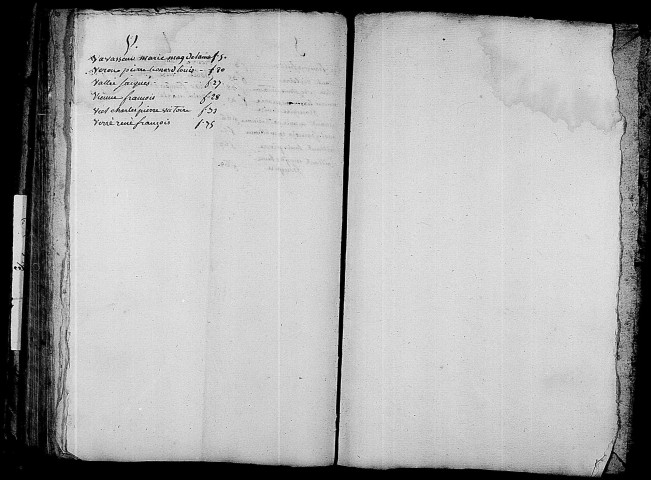 V.
Vavasseur marie magdelaine f. 5.
Veron pierre Leonord louis - f. 20
Vallée Jacques - f. 27
Vienne francois f. 28
Viel charles pierre victoire f. 33
Verré rené françois f. 75